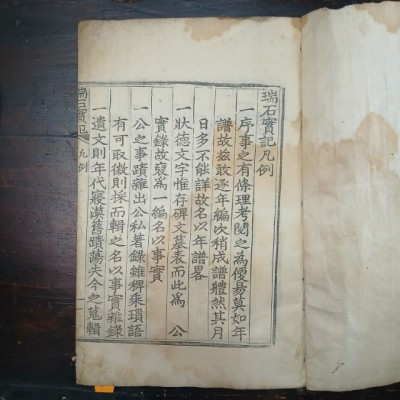 瑞石實記凡例
一序事之有條理考閱之為便易莫如年
譜故玆敢逐年編次稍成譜軆然其月
日多不能詳故名以年譜畧
一狀德文字惟存碑文墓表而此爲 公
實錄故裒爲一編名以事實
一公之事蹟雜出公私著錄雖稗乘瑣語
有可取徵則採而輯之名以事實雜錄
一遺文則年代寢漠舊蹟蕩失今之蒐輯
瑞石實記 凡例 一